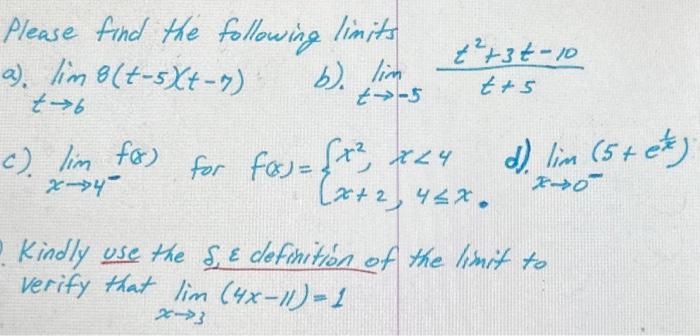 Please find the following limits
a). lim t→6 8(t-5)(t-7) b). lim t→-5 (t²+3t-10)/(t+5)
c). lim x→4⁻ f(x) for f(x) = { x², x<4 d). lim x→0⁻ (5+e^(1/x))
x+2, 4≤x.
). Kindly use the δ, ε definition of the limit to
verify that lim x→3 (4x-11)=1